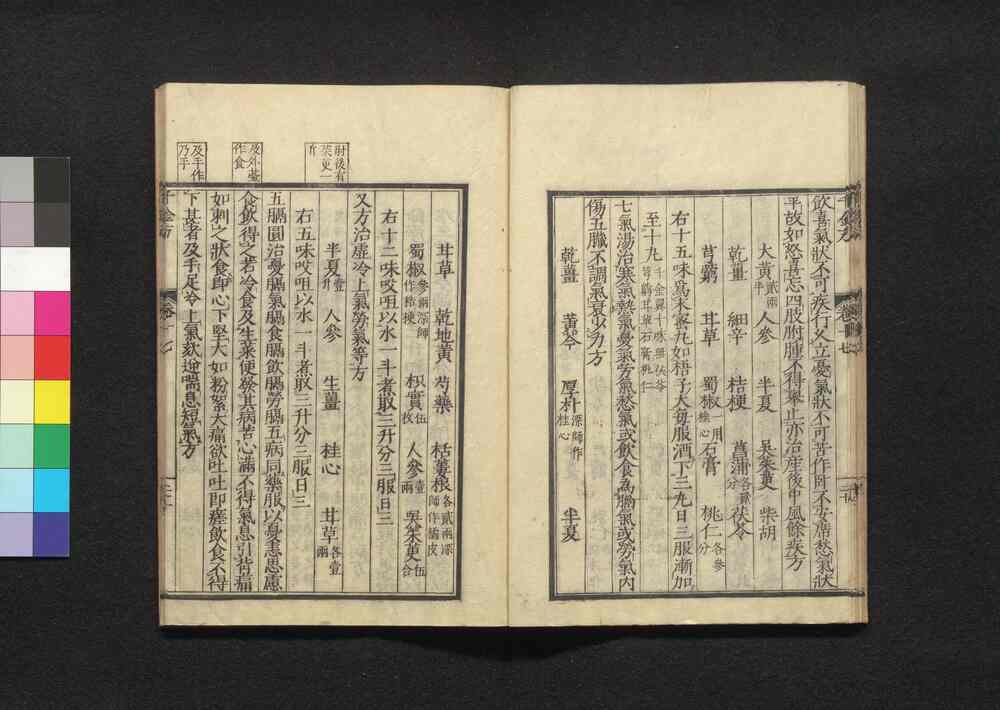 飲喜氣狀不可疾行久立憂氣狀不可苦作臥不安席愁氣狀
平故如怒喜忘四肢胕腫不得舉止亦治産後中風餘疾方
大黃貳兩半 人參 半夏 吳茱萸 柴胡
乾薑 細辛 桔梗 菖蒲各貳分 茯苓
芎藭 甘草 蜀椒一用桂心 石膏 桃仁各參分
右十五味爲末蜜丸如梧子大每服酒下三丸日三服漸加
至十丸千金翼十味無茯苓芎藭甘草石膏桃仁
七氣湯治寒氣熱氣憂氣勞氣愁氣或飲食爲膈氣或勞氣內
傷五臟不調氣衰少力方
乾薑 黃芩 厚朴深師作桂心 半夏
甘草 乾地黃 芍藥 栝蔞根各貳兩深師作橘皮
蜀椒參兩深師作桔梗 枳實伍枚 人參壹兩 吳茱萸伍合
右十二味㕮咀以水一斗煮取三升分三服日三
又方治虛冷上氣勞氣等方
半夏壹升 人參 生薑 桂心 甘草各壹兩
右五味㕮咀以水一斗煮取三升分三服日三
五膈圓治憂膈氣膈食膈飲膈勞膈五病同藥服以憂恚思慮
食飲得之若冷食及生菜便發其病苦心滿不得氣息引背痛
如刺之狀食卽心下堅大如粉絮大痛欲吐吐卽瘥飲食不得
下甚者及手足冷上氣欬逆喘息短氣方
肘後有茱萸一斤
及外臺作食
及手作乃手